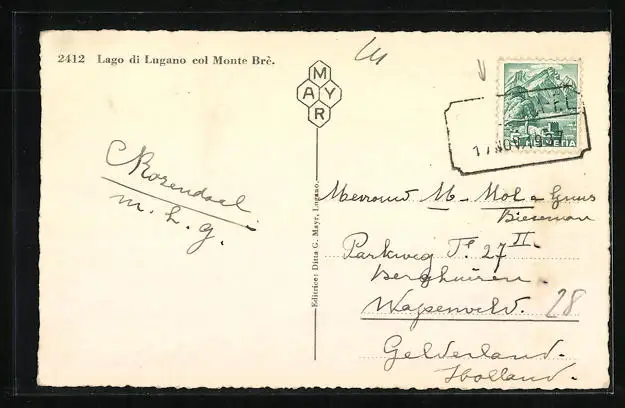 2412 Lago di Lugano col Monte Brè.
MAYR
Editrice: Ditta G. Mayr, Lugano.
HELVETIA
17 NOV 193
Rozendaal
m. h. g.
Mevrouw M - Mol - 
Parkweg 27 II.
Gelderland.
Holland.
28